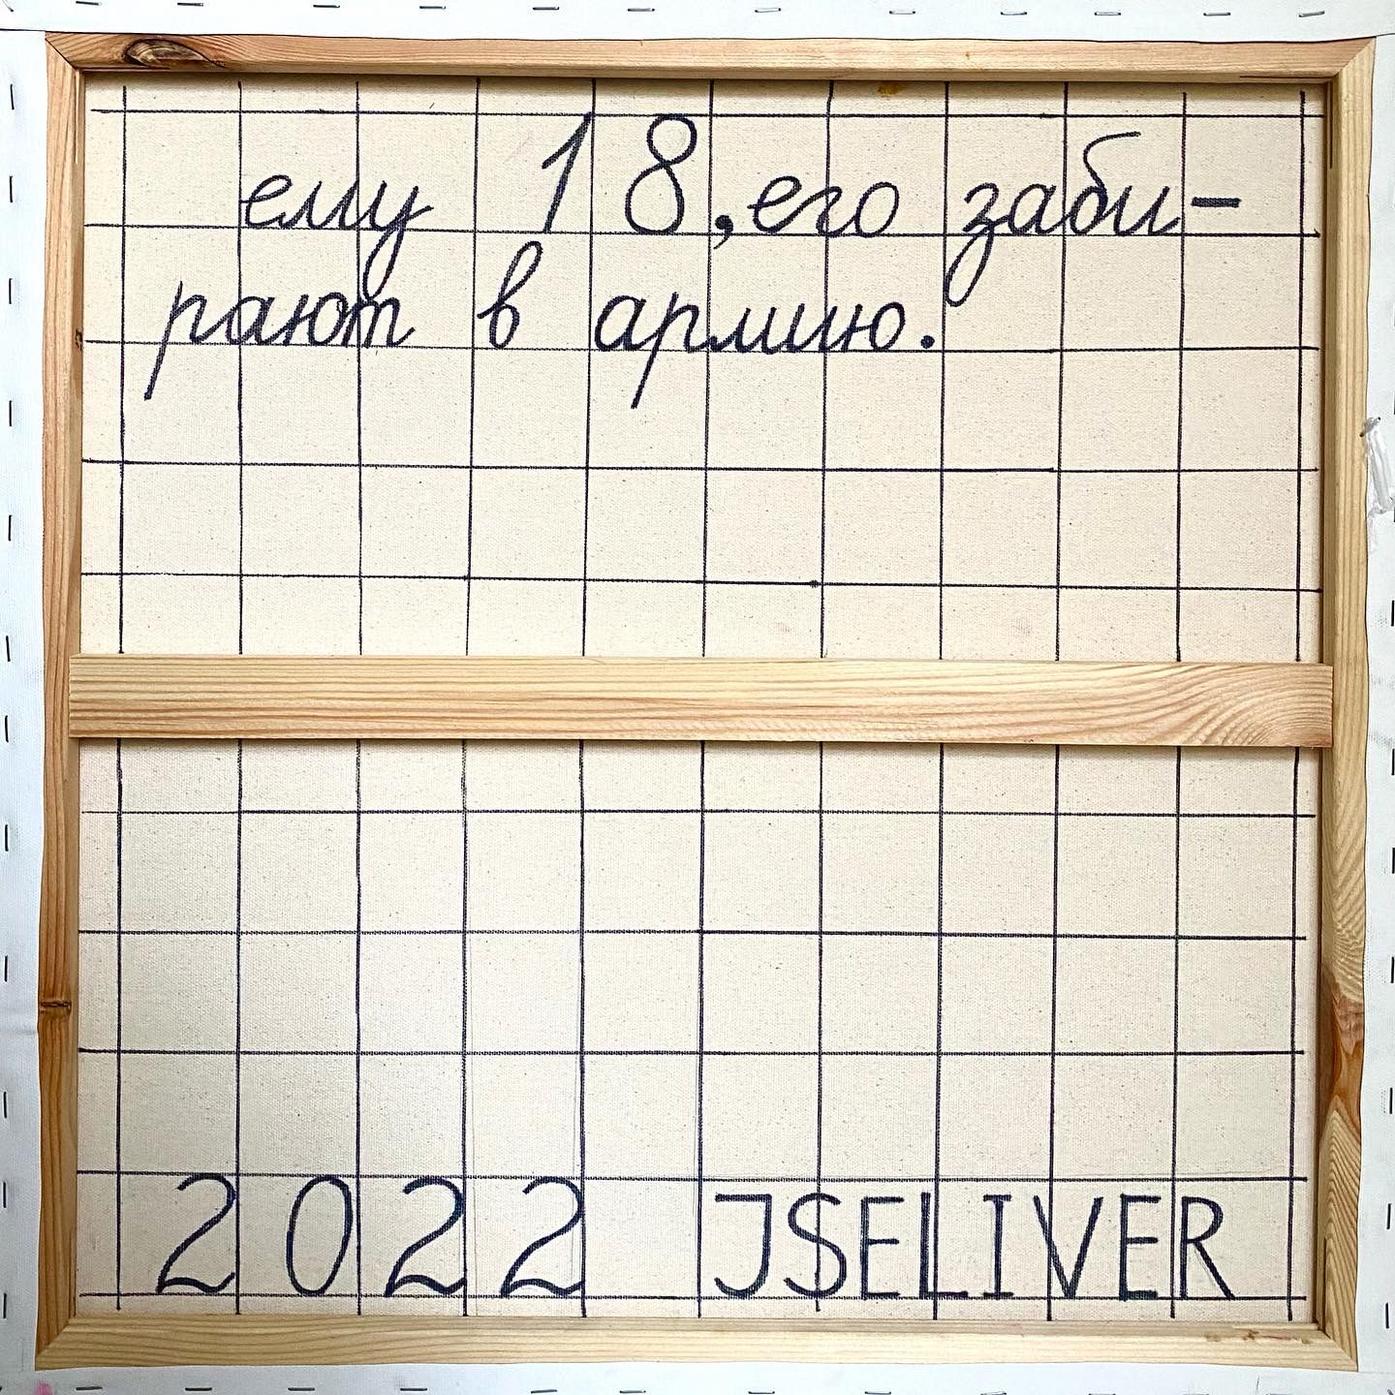 ему 18, его заби-
рают в армию.
2022 JSELIVER